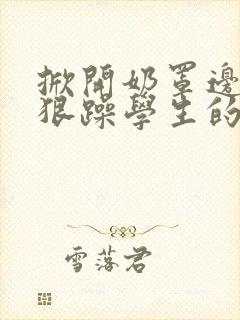 掀開奶罩邊
狠躁學生的
雪落君